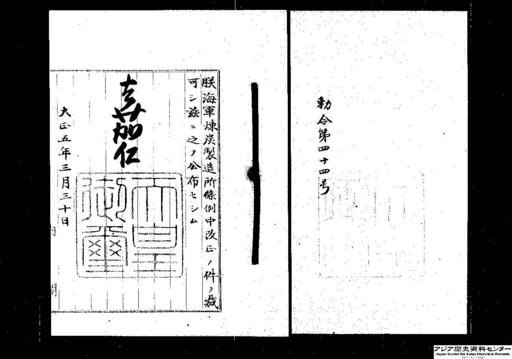 勅令第四十四号
朕海軍煉炭製造所條例中改正ノ件ヲ裁
可シ茲ニ之ヲ公布セシム
嘉仁
天皇
御璽
大正五年三月三十日
アジア歴史資料センター
Japan Center for Asian Historical Records